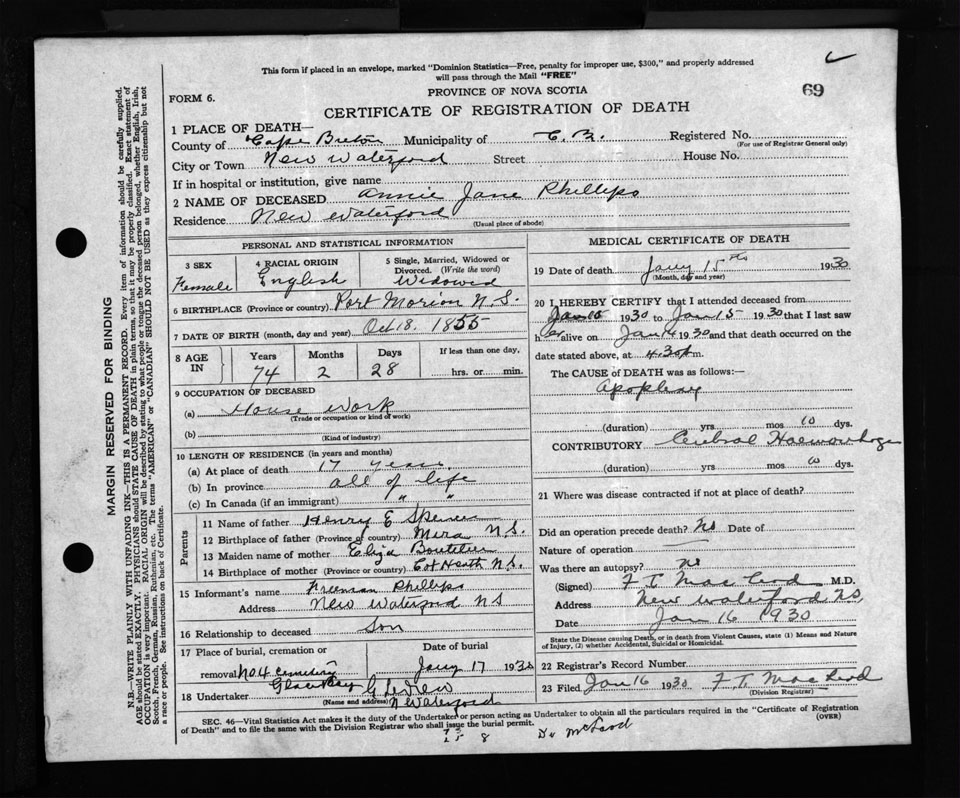 This form if placed in an envelope, marked "Dominion Statistics—Free, penalty for improper use, $300," and properly addressed
will pass through the Mail "FREE"
69
PROVINCE OF NOVA SCOTIA
FORM 6.
CERTIFICATE OF REGISTRATION OF DEATH
1 PLACE OF DEATH—
County of Cape Breton Municipality of C. B. Registered No.
(For use of Registrar General only)
City or Town New Waterford Street House No.
If in hospital or institution, give name
2 NAME OF DECEASED Annie Jane Phillips
Residence New Waterford
(Usual place of abode)
PERSONAL AND STATISTICAL INFORMATION
3 SEX Female
4 RACIAL ORIGIN English
5 Single, Married, Widowed or Divorced. (Write the word) Widowed
6 BIRTHPLACE (Province or country) Port Morion N.S.
7 DATE OF BIRTH (month, day and year) Oct 18. 1855
8 AGE IN Years 74 Months 2 Days 28 If less than one day. hrs. or min.
9 OCCUPATION OF DECEASED
(a) House Work
(Trade or occupation or kind of work)
(b)
(Kind of industry)
10 LENGTH OF RESIDENCE (in years and months)
(a) At place of death 17 years
(b) In province all of life
(c) In Canada (if an immigrant) " "
Parents
11 Name of father Henry E Spencer
12 Birthplace of father (Province or country) Mira N.S.
13 Maiden name of mother Eliza Boutilier
14 Birthplace of mother (Province or country) Cox Heath N.S.
15 Informant's name Freeman Phillips
Address New Waterford NS
16 Relationship to deceased Son
17 Place of burial, cremation or
removal No 4 Cemetery Glace Bay
Date of burial
Jany 17 1930
18 Undertaker
(Name and address) N Waterford
MEDICAL CERTIFICATE OF DEATH
19 Date of death Jany 15th 1930
(Month, day and year)
20 I HEREBY CERTIFY that I attended deceased from
Jan 15 1930 to Jan 15 1930 that I last saw
her alive on Jan 14 1930 and that death occurred on the
date stated above, at 4.30 p m.
The CAUSE of DEATH was as follows:
Apoplexy
(duration) yrs mos 10 dys.
CONTRIBUTORY Cerebral Haemorrhage
(duration) yrs mos 10 dys.
21 Where was disease contracted if not at place of death?
Did an operation precede death? No Date of
Nature of operation
Was there an autopsy? No
(Signed) F T MacLeod M.D.
Address New Waterford NS
Date Jan 16 1930
State the Disease causing Death, or in death from Violent Causes, state (1) Means and Nature
of Injury, (2) whether Accidental, Suicidal or Homicidal.
22 Registrar's Record Number
23 Filed Jan 16 1930 F T. MacLeod
(Division Registrar)
SEC. 46—Vital Statistics Act makes it the duty of the Undertaker or person acting as Undertaker to obtain all the particulars required in the "Certificate of Registration
of Death" and to file the same with the Division Registrar who shall issue the burial permit.
(OVER)
Dr McLeod
MARGIN RESERVED FOR BINDING
N.B.—WRITE PLAINLY WITH UNFADING INK—THIS IS A PERMANENT RECORD. Every item of information should be carefully supplied.
AGE should be stated EXACTLY. PHYSICIANS should STATE CAUSE OF DEATH in plain terms, so that it may be properly classified. Exact statement of
OCCUPATION is very important. RACIAL ORIGIN will be described by stating to what people or tongue the deceased person belonged, whether English, Irish,
Scotch, French, German, Russian, Ruthenian, etc. The terms "AMERICAN" or "CANADIAN" SHOULD NOT BE USED as they express citizenship but not
a race or people. See instructions on back of Certificate.